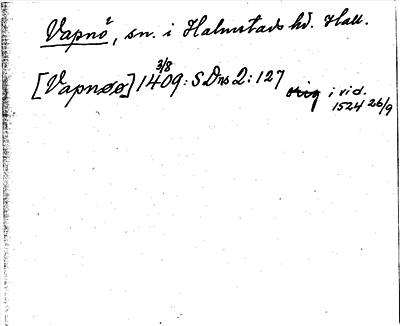 Vapnö, sn. i Halmstads hd. Hall.
[Vapnøø] 3/8 1409: SDns 2: 127 orig i vid.
1524 26/9